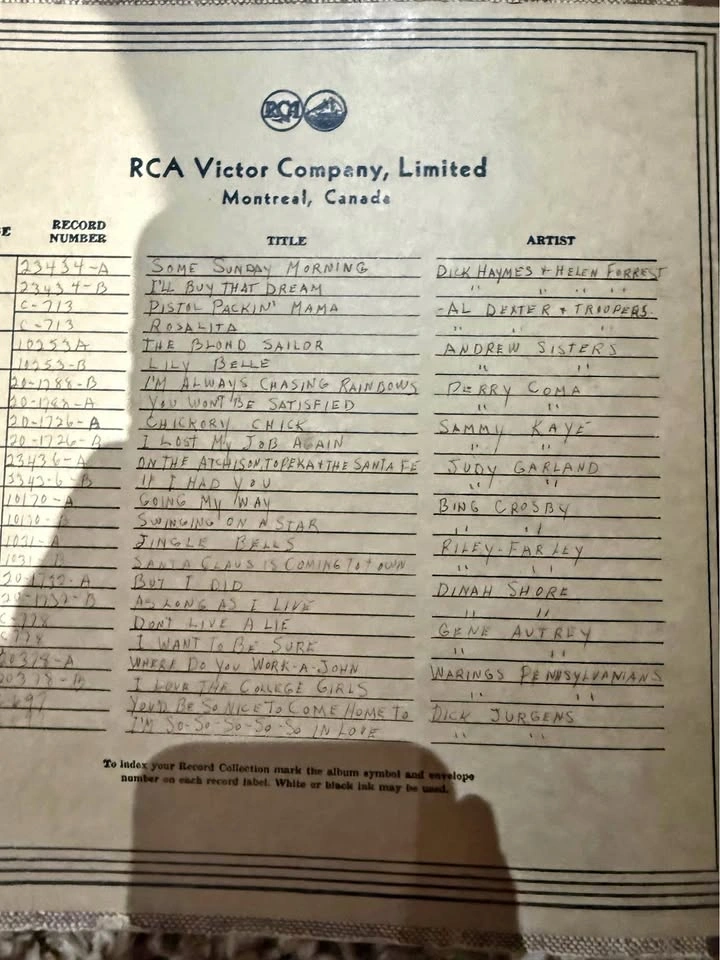 RCA
RCA Victor Company, Limited
Montreal, Canada
E RECORD NUMBER TITLE ARTIST
23434-A SOME SUNDAY MORNING DICK HAYMES + HELEN FORREST
23434-B I'LL BUY THAT DREAM " " " "
C-713 PISTOL PACKIN' MAMA -AL DEXTER + TROOPERS.
C-713 ROSALITA " " "
10253A THE BLOND SAILOR ANDREW SISTERS
10253-B LILY BELLE " "
20-1788-B I'M ALWAYS CHASING RAINBOWS PERRY COMA
20-1788-A YOU WON'T BE SATISFIED " "
20-1726-A CHICKORY CHICK SAMMY KAYE
20-1726-B I LOST MY JOB AGAIN " "
23436-A ON THE ATCHISON, TOPEKA + THE SANTA FE JUDY GARLAND
23436-B IF I HAD YOU " "
10170-A GOING MY WAY BING CROSBY
10170-B SWINGING ON A STAR " "
1031-A JINGLE BELLS RILEY-FARLEY
1031-B SANTA CLAUS IS COMING TO TOWN " "
20-1732-A BUT I DID DINAH SHORE
20-1732-B AS LONG AS I LIVE " "
C-778 DON'T LIVE A LIE GENE AUTREY
C-778 I WANT TO BE SURE " "
20378-A WHERE DO YOU WORK-A-JOHN WARINGS PENNSYLVANIANS
20378-B I LOVE THE COLLEGE GIRLS " "
697 YOU'D BE SO NICE TO COME HOME TO DICK JURGENS
I'M SO-SO-SO-SO-SO IN LOVE " "
To index your Record Collection mark the album symbol and envelope
number on each record label. White or black ink may be used.